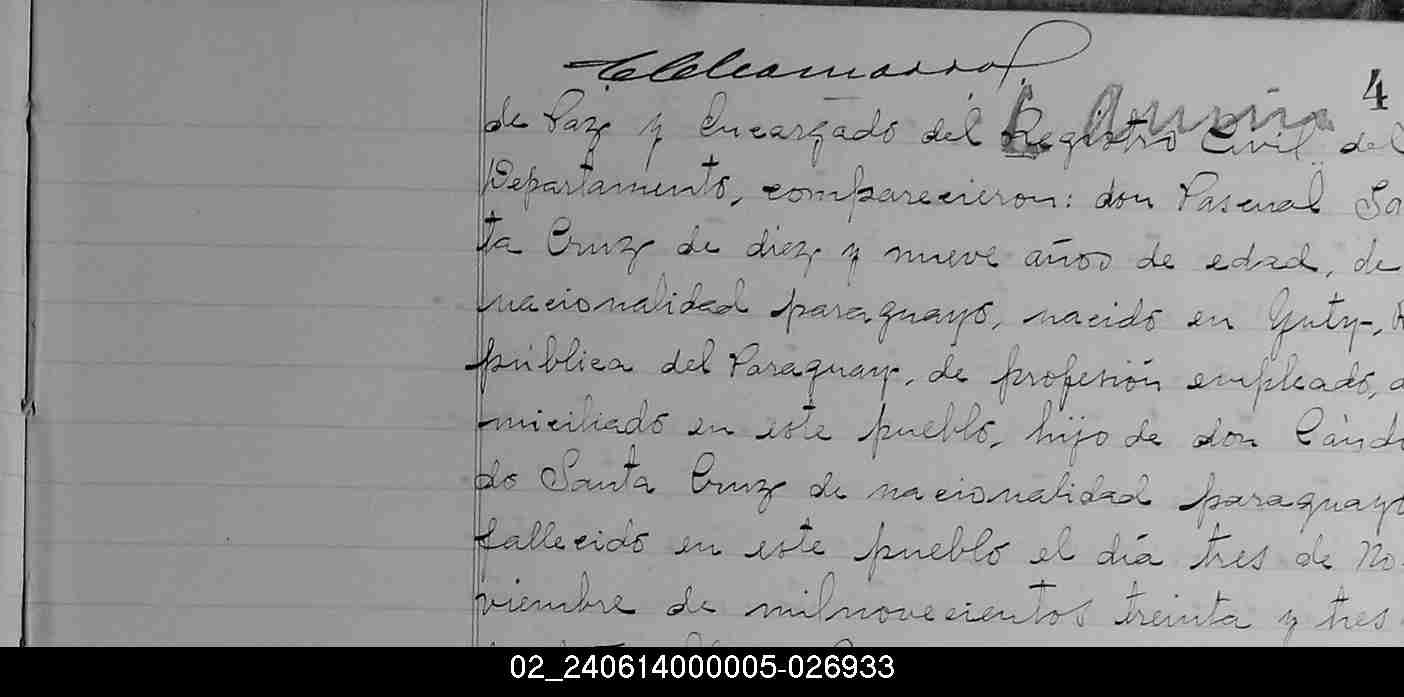 4
de Paz y Encargado del Registro Civil del
Departamento, comparecieron: don Pascual Sa
ta Cruz de diez y nueve años de edad, de
nacionalidad paraguayo, nacido en Yuty,
pública del Paraguay, de profesión empleado,
miciliado en este pueblo, hijo de don Cándi
do Santa Cruz de nacionalidad paraguayo
fallecido en este pueblo el día tres de No
viembre de milnovecientos treinta y tres
02_240614000005-026933